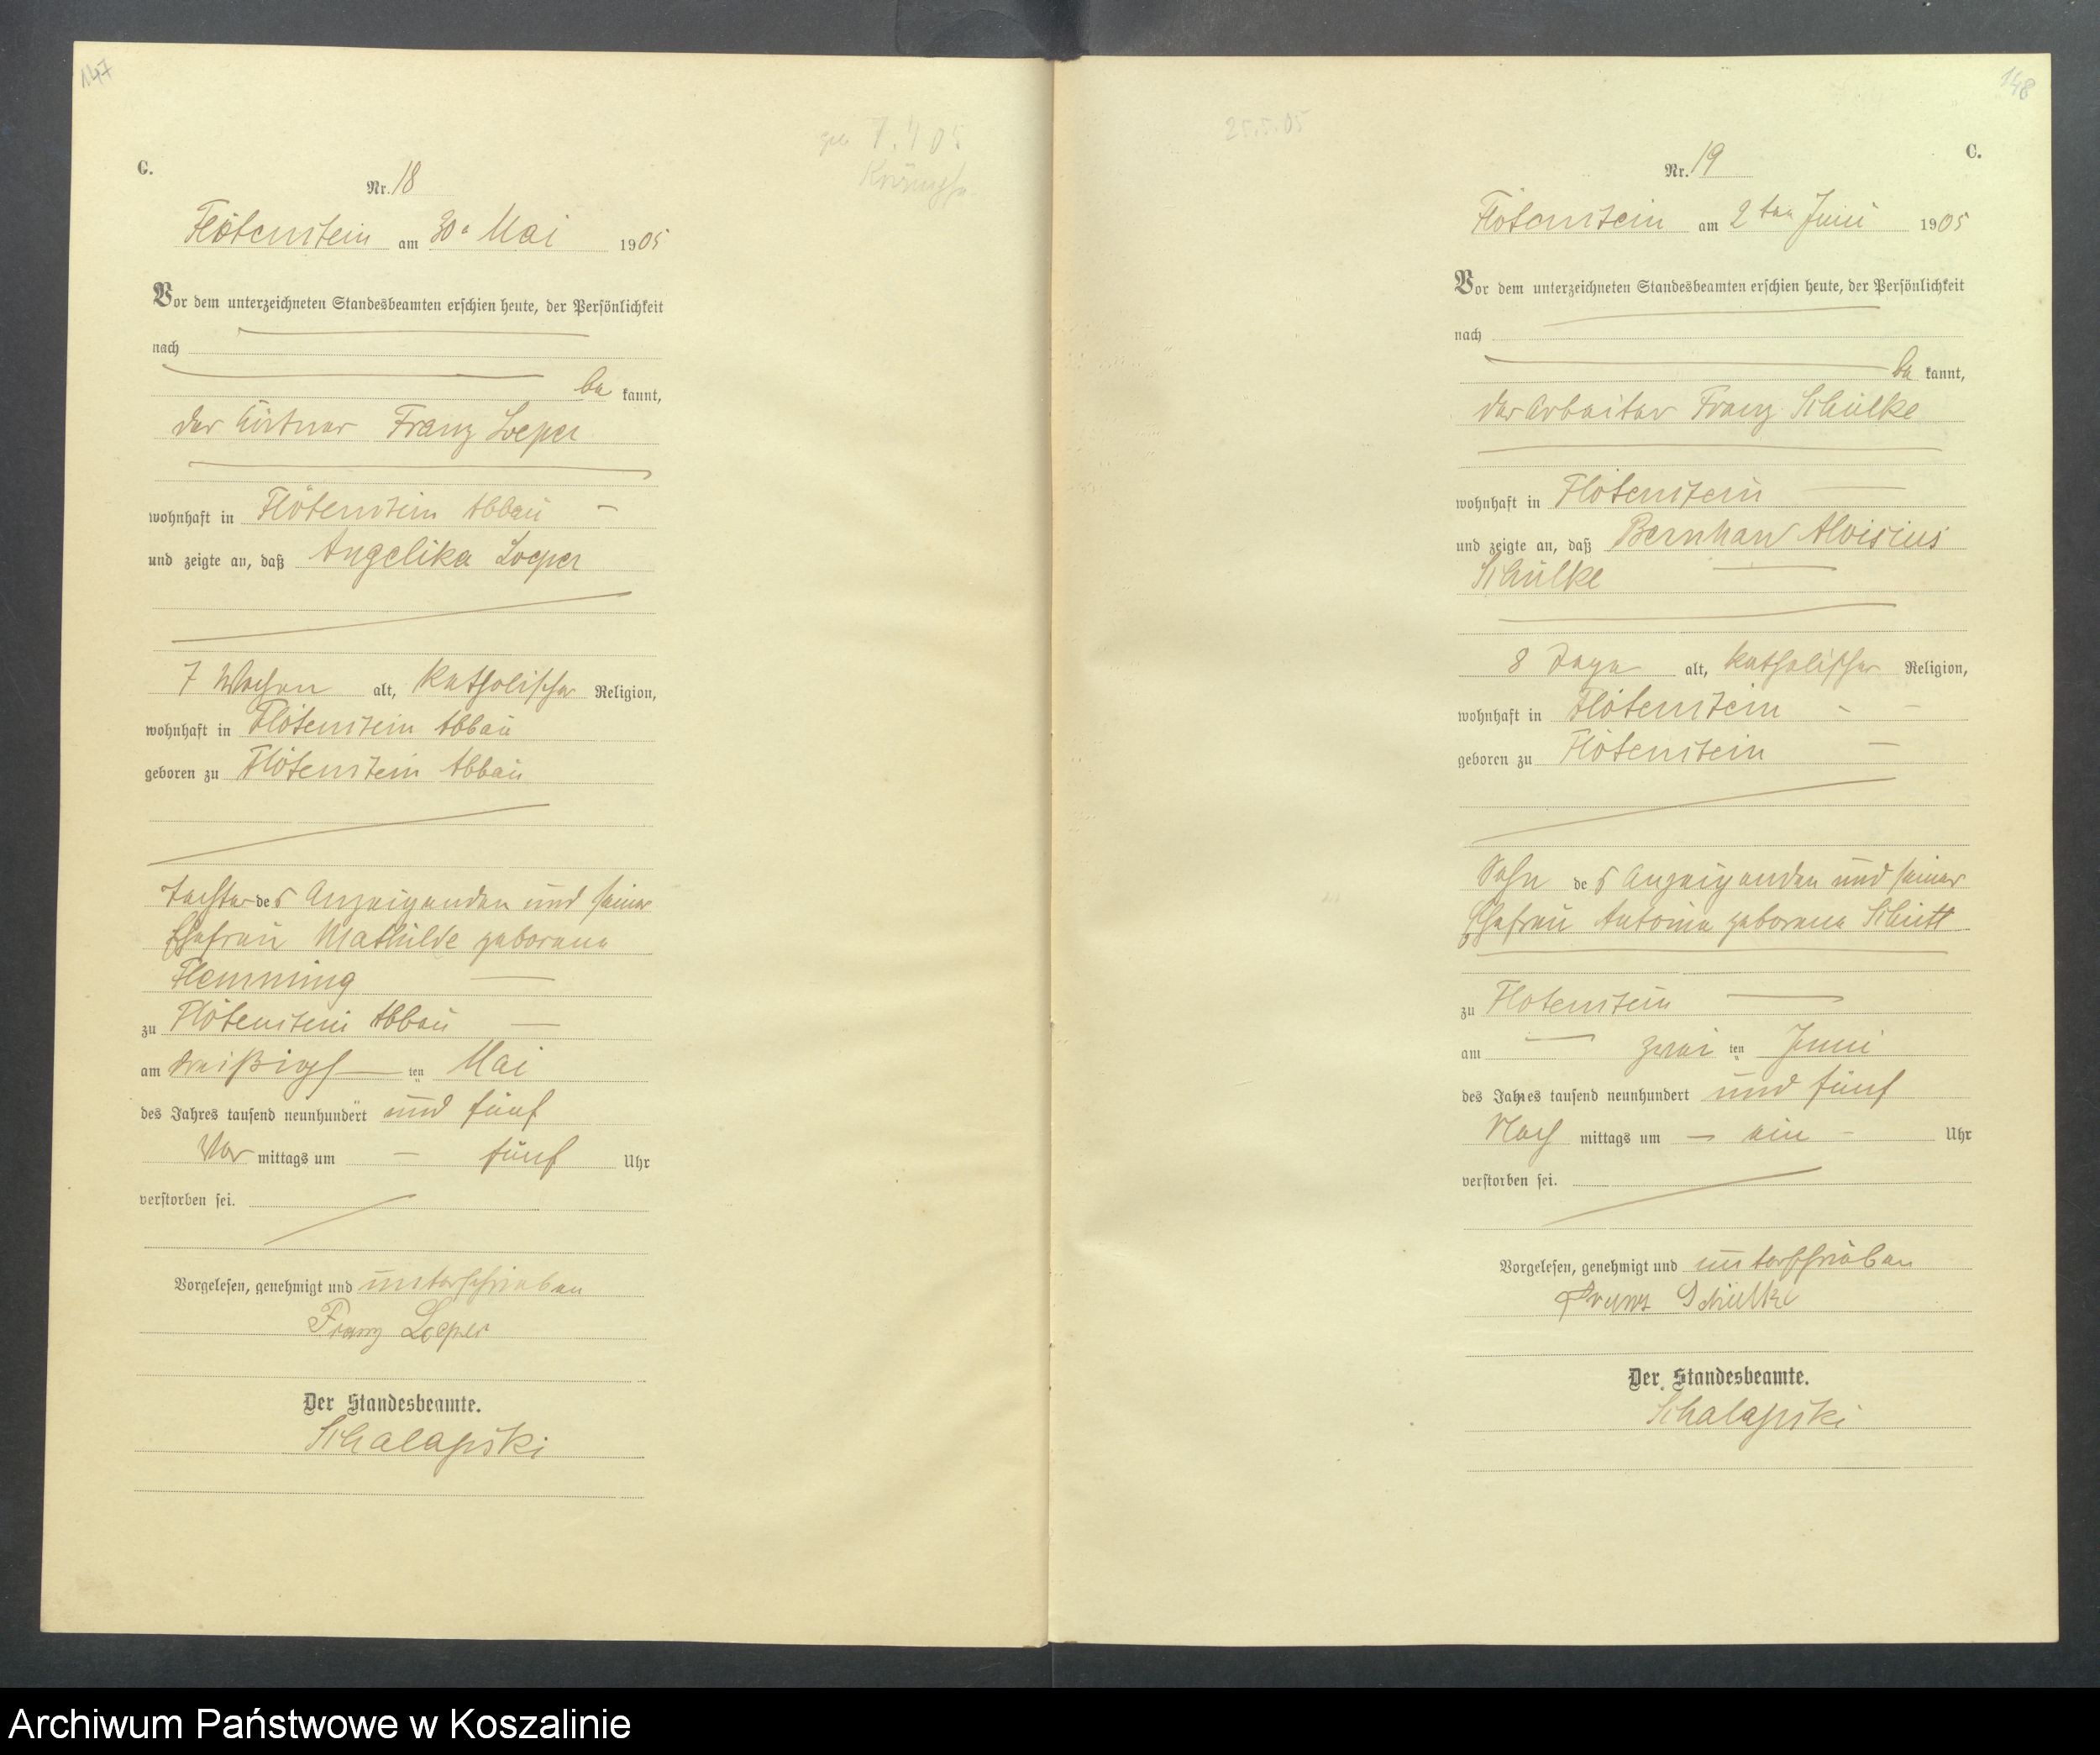 147
geb 7.4 05
C.
Nr. 18
Flötenstein am 30. Mai 1905
Vor dem unterzeichneten Standesbeamten erschien heute, der Persönlichkeit
nach
be kannt,
der Franz Loeper
wohnhaft in Flötenstein Abbau
und zeigte an, daß Angelika Loeper
7 Wochen alt, katholischer Religion,
wohnhaft in Flötenstein Abbau
geboren zu Flötenstein Abbau
Tochter des Anzeigenden und seiner
Ehefrau Mathilde geborene
Flemming
zu Flötenstein Abbau
am dreißigs ten Mai
des Jahres tausend neunhundert und fünf
Vor mittags um fünf Uhr
verstorben sei.
Vorgelesen, genehmigt und unterschrieben
Franz Loeper
Der Standesbeamte.
Schalapski
148
25.5.05
C.
Nr. 19
Flötenstein am 2ten Juni 1905
Vor dem unterzeichneten Standesbeamten erschien heute, der Persönlichkeit
nach
be kannt,
der Arbeiter Franz Schülke
wohnhaft in Flötenstein
und zeigte an, daß Bernhard Aloisius
Schülke
8 Tage alt, katholischer Religion,
wohnhaft in Flötenstein
geboren zu Flötenstein
Sohn des Anzeigenden und seiner
Ehefrau Antonie geborene Schütt
zu Flötenstein
am zwei ten Juni
des Jahres tausend neunhundert und fünf
Nach mittags um ein Uhr
verstorben sei.
Vorgelesen, genehmigt und unterschrieben
Franz Schülke
Der Standesbeamte.
Schalapski
Archiwum Państwowe w Koszalinie